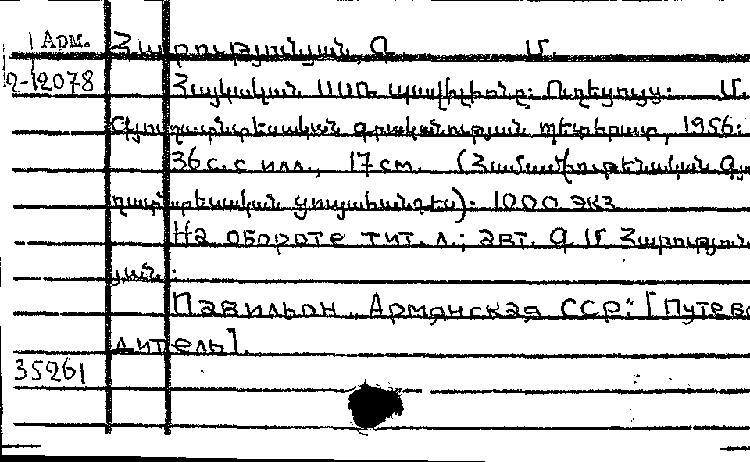 Арм.
2-12078
Հարությունյան, Գ. Մ.
Հայկական ՍՍՌ պավիլիոնը: Ուղեցույց: Մ.
Գյուղատնտեսական գրականության պետհրատ, 1956:
36 с. с илл., 17 см. (Համամիութենական Գյու
ղատնտեսական ցուցահանդես): 1000 экз
На обороте тит. л.: авт. Գ Մ Հարություն
յան:
Павильон „Армянская ССР: [Путево
дитель].
35261